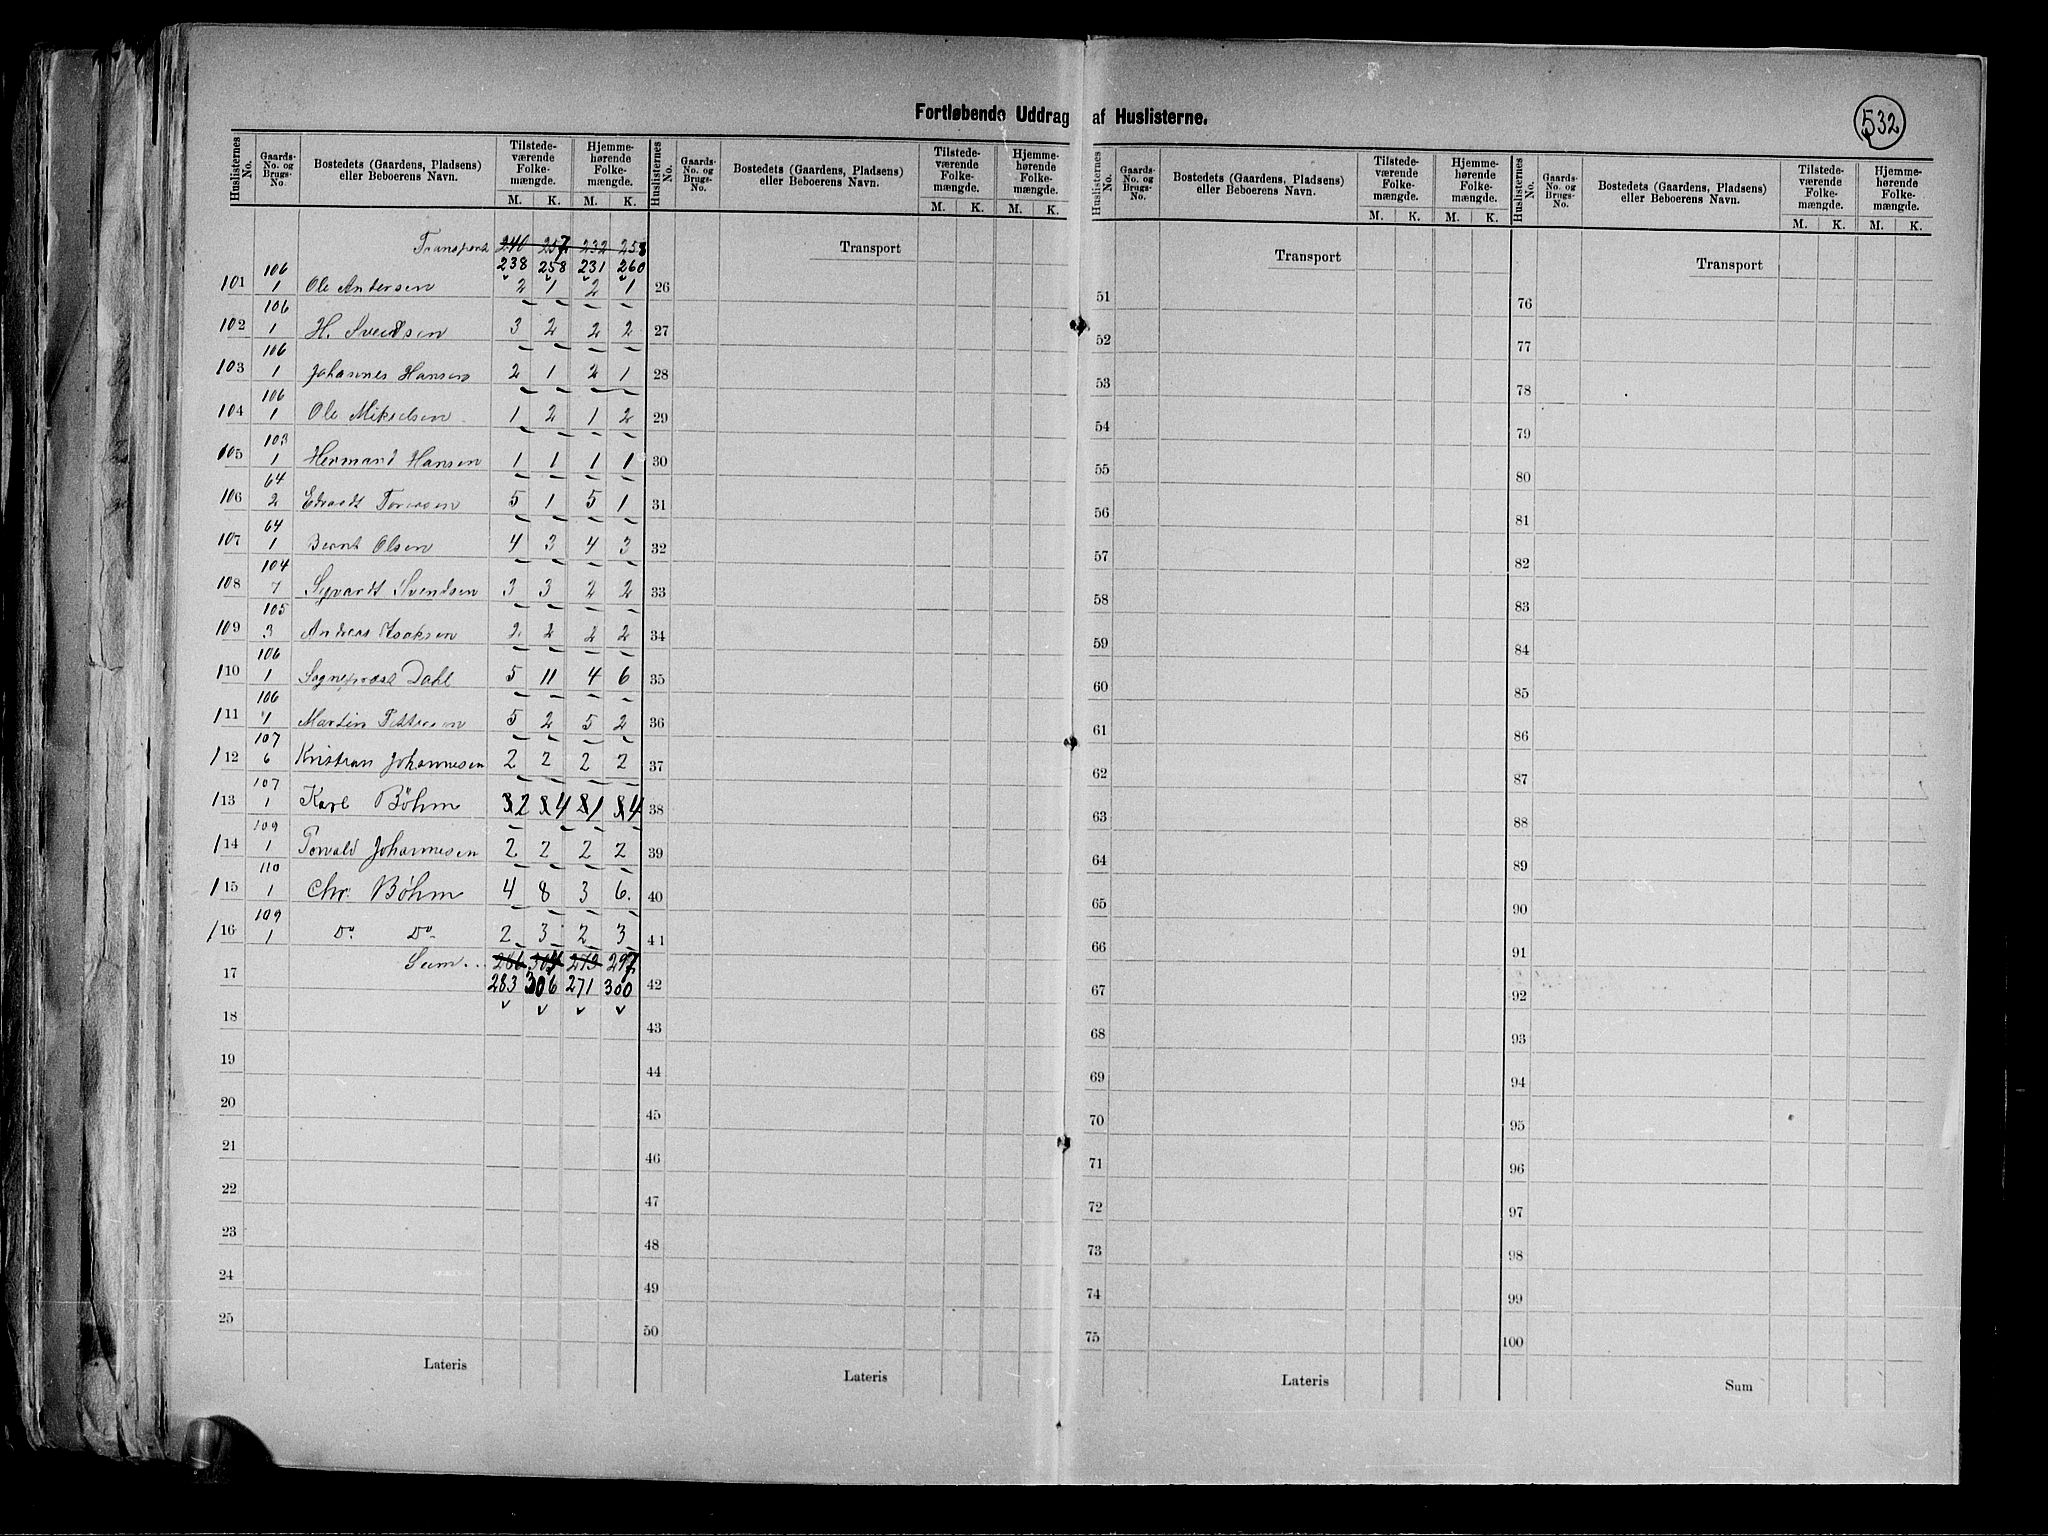 532
Fortløbende Uddrag af Huslisterne.
Huslisternes No. | Gaards-No. og Brugs-No. | Bostedets (Gaardens, Pladsens) eller Beboerens Navn. | Tilstede-værende Folke-mængde. M. K. | Hjemme-hørende Folke-mængde. M. K.
Huslisternes No. | Gaards-No. og Brugs-No. | Bostedets (Gaardens, Pladsens) eller Beboerens Navn. | Tilstede-værende Folke-mængde. M. K. | Hjemme-hørende Folke-mængde. M. K.
Huslisternes No. | Gaards-No. og Brugs-No. | Bostedets (Gaardens, Pladsens) eller Beboerens Navn. | Tilstede-værende Folke-mængde. M. K. | Hjemme-hørende Folke-mængde. M. K.
Huslisternes No. | Gaards-No. og Brugs-No. | Bostedets (Gaardens, Pladsens) eller Beboerens Navn. | Tilstede-værende Folke-mængde. M. K. | Hjemme-hørende Folke-mængde. M. K.
Transport 240 257 232 258
238 258 231 260
101 106/1 Ole Andersen 2 1 2 1
102 106/1 H. Svendsen 3 2 2 2
103 106/1 Johannes Hansen 2 1 2 1
104 106/1 Ole Mikkelsen 1 2 1 2
105 103/1 Hermand Hansen 1 1 1 1
106 64/2 Edvardt 5 1 5 1
107 64/1 Bernt Olsen 4 3 4 3
108 104/7 Sigvardt Svendsen 3 3 2 2
109 105/3 Andreas Isaksen 2 2 2 2
110 106/1 Sogneprest Dahl 5 11 4 6
111 106/1 Martin Pettersen 5 2 5 2
112 107/6 Kristian Johannesen 2 2 2 2
113 107/1 Karl Böhm 2 4 1 4
114 109/1 Torvald Johannesen 2 2 2 2
115 110/1 Chr. Böhm 4 8 3 6.
116 109/1 Do Do 2 3 2 3
Sum.. 286 304 273 297
17 283 306 271 300
18
19
20
21
22
23
24
25
Lateris
Transport
26
27
28
29
30
31
32
33
34
35
36
37
38
39
40
41
42
43
44
45
46
47
48
49
50
Lateris
Transport
51
52
53
54
55
56
57
58
59
60
61
62
63
64
65
66
67
68
69
70
71
72
73
74
75
Lateris
Transport
76
77
78
79
80
81
82
83
84
85
86
87
88
89
90
91
92
93
94
95
96
97
98
99
100
Sum